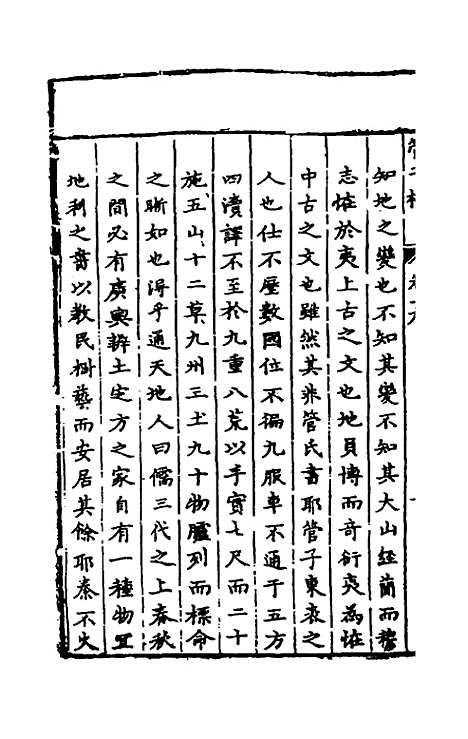 知地之變也不知其變不知其大山經簡而
志恠於夷上古之文也地員博而奇衍爽為恠
中古之文也雖然其非管氏書耶管子東裔之
人也仕不歷數國位不徧九服車不通于五方
四瀆譯不至於九重八荒以手實七尺而二十
施五山十二草九州三土九十物臚列而標命
之晰如也淂乎通天地人曰儒三代之上春秋
之間必有廣輿辨土宅方之家自有一種物宜
地利之書以教民樹藝而安居其餘耶秦不火